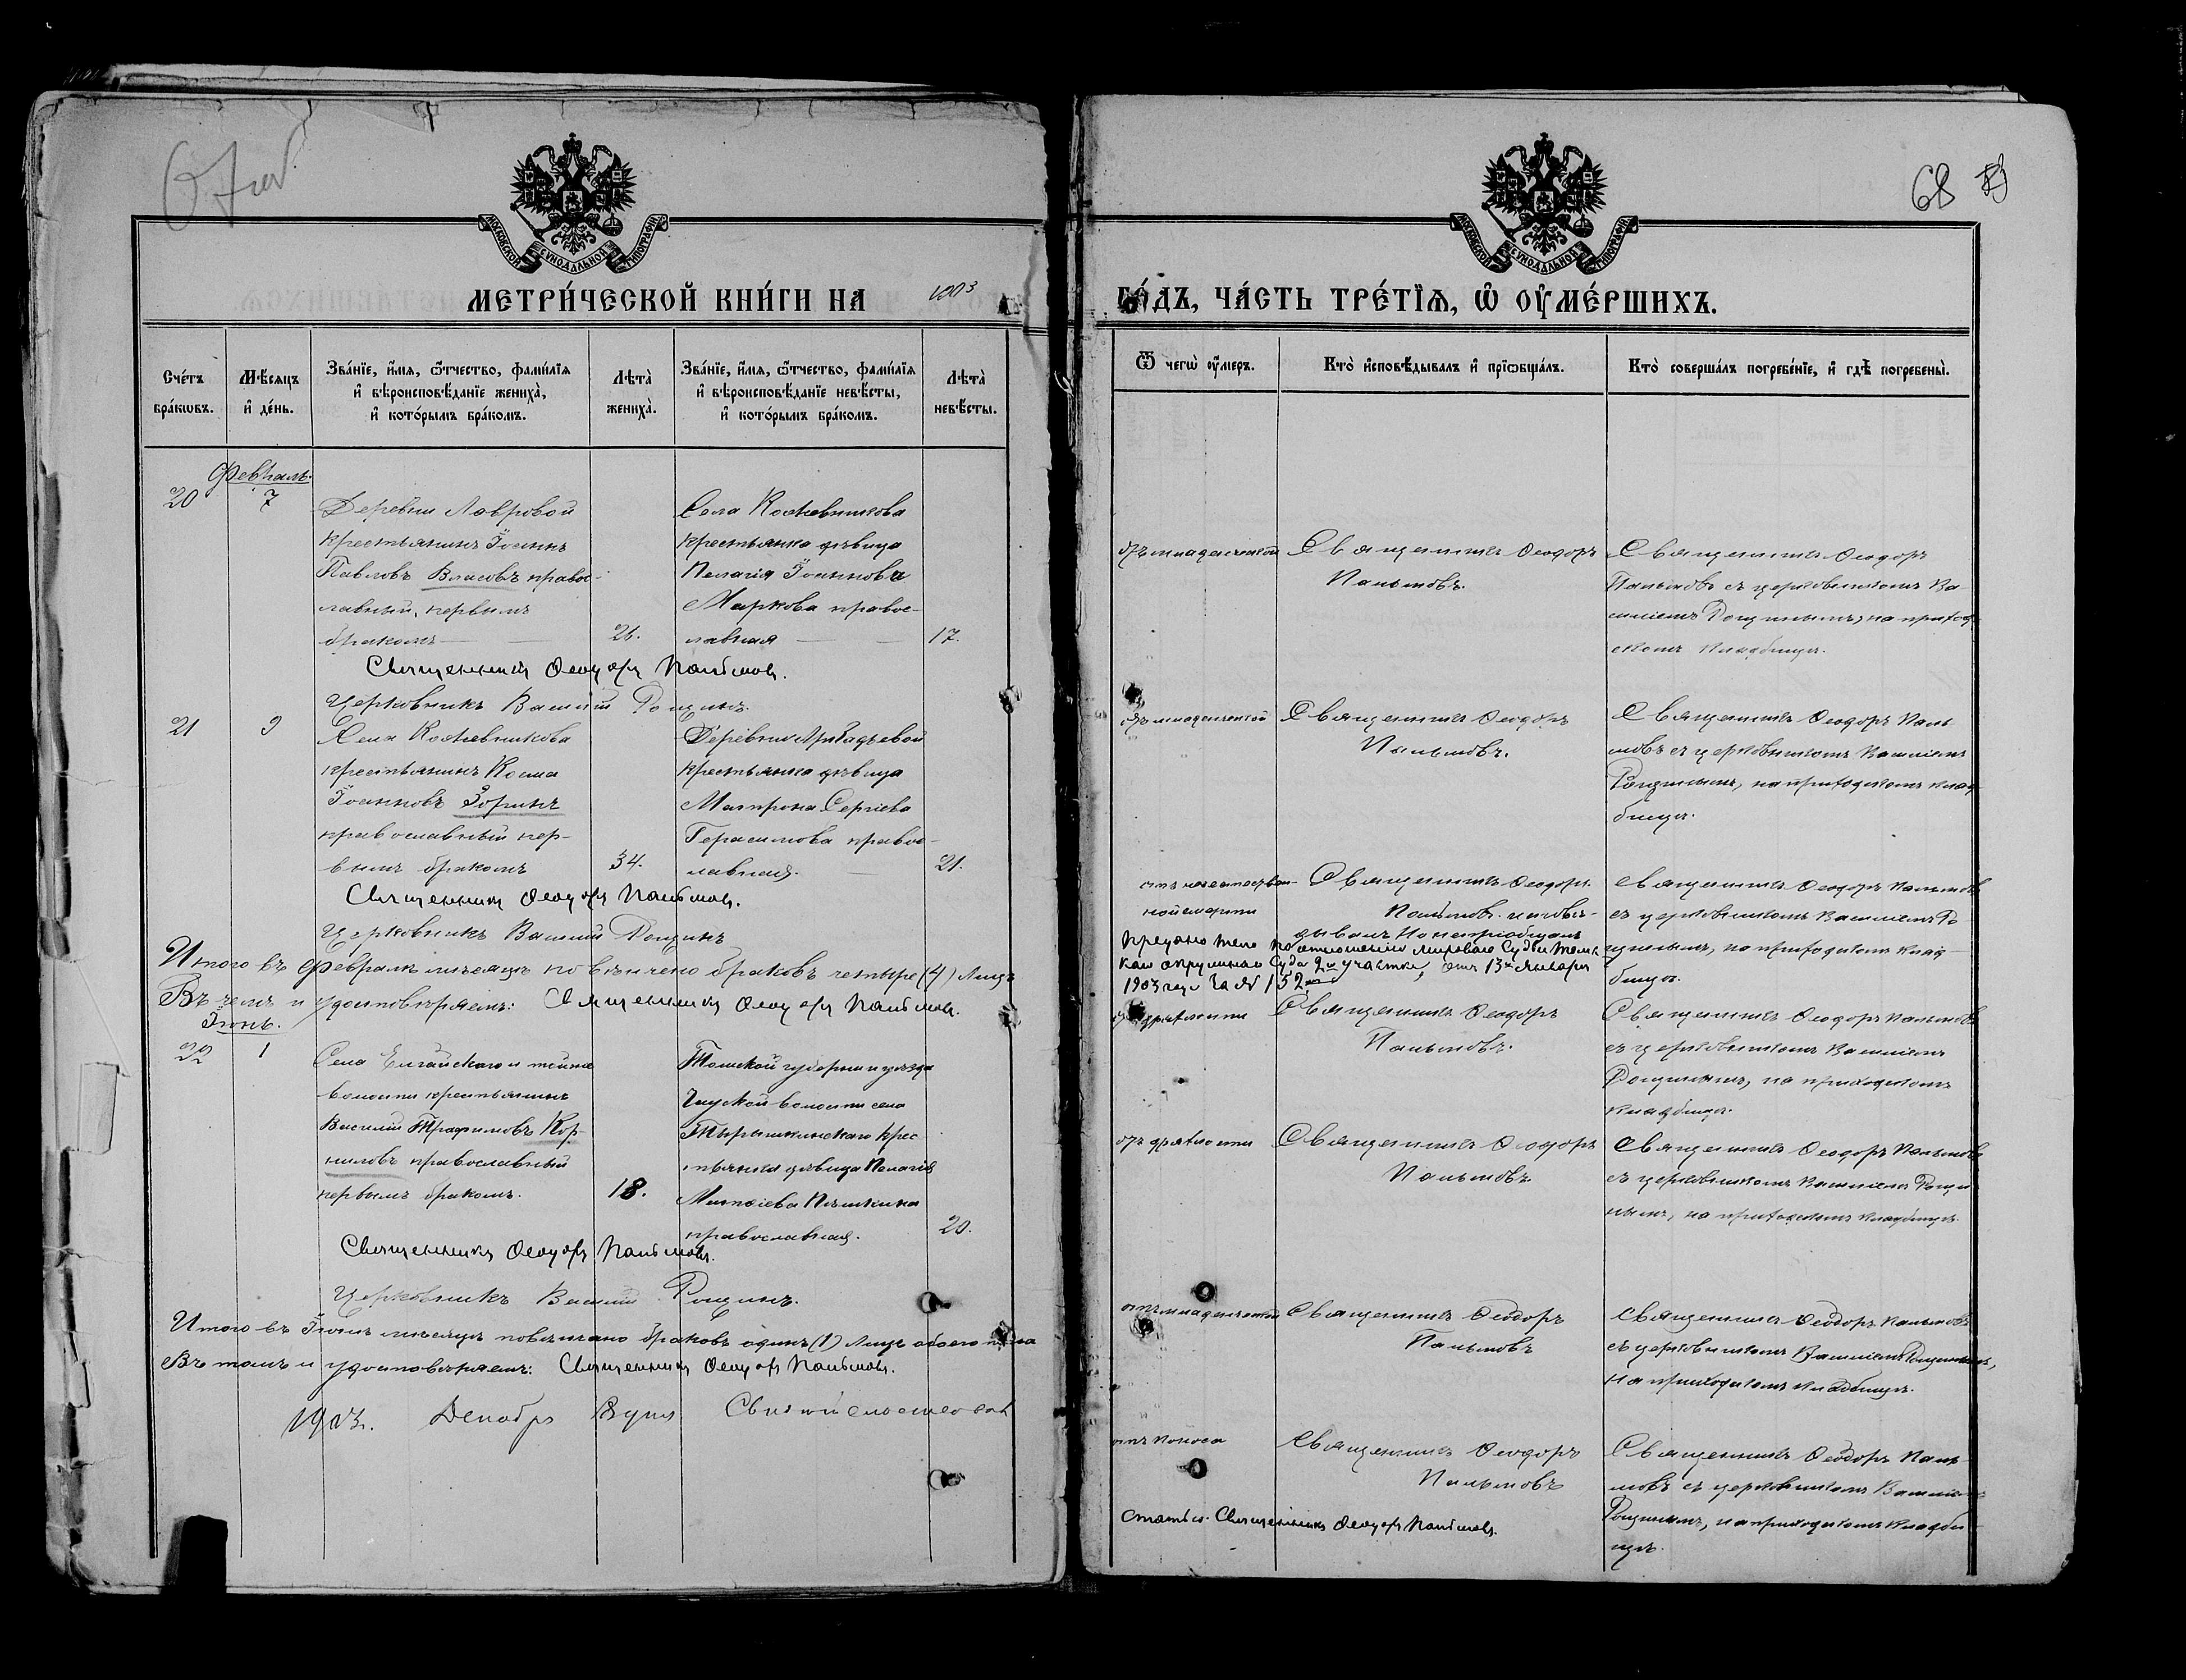 67 об
МОСКОВСКОЙ СѴНОДАЛЬНОЙ ТИПОГРАФІИ
МЕТРИ́ЧЕСКОЙ КНИ́ГИ НА 1903
Сче́тъ бра́кѡвъ.
Мѣ́сяцъ и҆ де́нь.
Зва́нїе, и҆́мя, ѻ҆́тчество, фами́лїя и҆ вѣроисповѣ́данїе жениха̀, и҆ кото́рымъ бра́комъ.
Лѣта̀ жениха̀.
Зва́нїе, и҆́мя, ѻ҆́тчество, фами́лїя и҆ вѣроисповѣ́данїе невѣ́сты, и҆ кото́рымъ бра́комъ.
Лѣта̀ невѣ́сты.
Февраль.
20 7
Деревни Лавровой
крестьянинъ Іоаннъ
Павловъ Власовъ правос-
лавный, первымъ
бракомъ 26.
Села Кожевникова
крестьянка дѣвица
Пелагія Іоаннова
Маркова правос-
лавная 17.
Священникъ Ѳеодоръ Пальмовъ.
Церковникъ Василій Рощинъ.
21 9
Села Кожевникова
крестьянинъ Косма
Іоанновъ Зоринъ
православный пер-
вымъ бракомъ 34.
Деревни Аркадьевой
крестьянка дѣвица
Матрона Сергіева
Герасимова правос-
лавная. 21.
Священникъ Ѳеодоръ Пальмовъ.
Церковникъ Василій Рощинъ
Итого въ Февралѣ мѣсяцѣ повѣнчано браковъ четыре (4) Лицъ
Въ чемъ и удостовѣряемъ: Священникъ Ѳеодоръ Пальмовъ.
Іюнь.
22 1
Села Елгайскаго и тойже
волости крестьянинъ
Василій Трофимовъ Кор-
ниловъ православный
первымъ бракомъ. 18.
Томской губерніи и уѣзда
волости села
крес-
тьянка дѣвица Пелагія
Матѳіева Пѣшкина
православная. 20.
Священникъ Ѳеодоръ Пальмовъ.
Церковникъ Василій Рощинъ.
Итого въ Іюнѣ мѣсяцѣ повѣнчано браковъ одинъ (1) Лицъ обоего пола
Въ томъ и удостовѣряемъ: Священникъ Ѳеодоръ Пальмовъ.
1903. Декабря 8 дня
68
МОСКОВСКОЙ СѴНОДАЛЬНОЙ ТИПОГРАФІИ
ГО́ДЪ, ЧА́СТЬ ТРЕ́ТЇѦ, Ѡ҆ ОУ҆МЕ́РШИХЪ.
Ѿ чегѡ̀ оу҆́меръ.
Кто̀ и҆сповѣ́дывалъ и҆ прїѡбща́лъ.
Кто̀ соверша́лъ погребе́нїе, и҆ гдѣ̀ погребены̀.
отъ младенческой
Священникъ Ѳеодоръ
Пальмовъ.
Священникъ Ѳеодоръ
Пальмовъ съ церковникомъ Ва-
силіемъ Рощинымъ, на приход-
скомъ кладбищѣ.
отъ младенческой
Священникъ Ѳеодоръ
Пальмовъ.
Священникъ Ѳеодоръ Паль-
мовъ съ церковникомъ Василіемъ
Рощинымъ, на приходскомъ клад-
бищѣ.
отъ неестествен-
ной смерти
Священникъ Ѳеодоръ
Пальмовъ исповѣ-
дывалъ но не пріобщалъ
Предано тело по отношенію Мирового Судьи Томс-
каго окружнаго Суда 2го участка, отъ 13го Января
1903 года за № 152
Священникъ Ѳеодоръ Пальмовъ
съ церковникомъ Василіемъ Ро-
щинымъ, на приходскомъ клад-
бищѣ.
отъ дряхлости
Священникъ Ѳеодоръ
Пальмовъ.
Священникъ Ѳеодоръ Пальмовъ
съ церковникомъ Василіемъ
Рощинымъ, на приходскомъ
кладбищѣ.
отъ дряхлости
Священникъ Ѳеодоръ
Пальмовъ.
Священникъ Ѳеодоръ Пальмовъ
съ церковникомъ Василіемъ Рощи-
нымъ, на приходскомъ кладбищѣ.
отъ младенческой
Священникъ Ѳеодоръ
Пальмовъ
Священникъ Ѳеодоръ Пальмовъ
съ церковникомъ Василіемъ Рощинымъ,
на приходскомъ кладбищѣ.
отъ поноса
Священникъ Ѳеодоръ
Пальмовъ
Священникъ Ѳеодоръ Паль-
мовъ съ церковникомъ Василіемъ
Рощинымъ, на приходскомъ кладби-
щѣ.
статью. Священникъ Ѳеодоръ Пальмовъ.